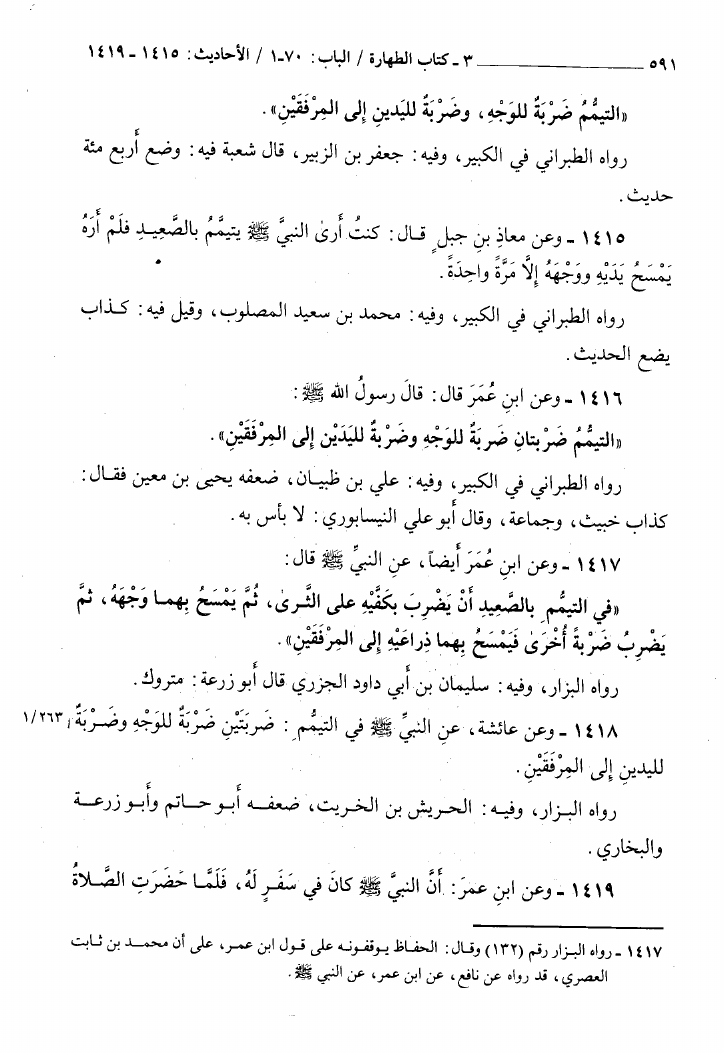 ٥٩١ ـــــــــــــــــــــ ٣ ـ كتاب الطهارة / الباب: ٧٠-١ / الأحاديث: ١٤١٥ - ١٤١٩
«التيمُّمُ ضَرْبَةٌ للوَجْهِ، وضَرْبَةٌ لليَدينِ إلى المِرْفَقَيْنِ».
رواه الطبراني في الكبير، وفيه: جعفر بن الزبير، قال شعبة فيه: وضع أربع مئة
حديث.
١٤١٥ ـ وعن معاذِ بنِ جبلٍ قال: كنتُ أَرىٰ النبيَّ ﷺ يتيمَّمُ بالصَّعِيدِ فلَمْ أَرَهُ
يَمْسَحُ يَدَيْهِ ووَجْهَهُ إلَّا مَرَّةً واحِدَةً.
رواه الطبراني في الكبير، وفيه: محمد بن سعيد المصلوب، وقيل فيه: كذاب
يضع الحديث.
١٤١٦ ـ وعن ابنِ عُمَرَ قال: قالَ رسولُ الله ﷺ:
«التيمُّمُ ضَرْبتانِ ضَربَةٌ للوَجْهِ وضَرْبةٌ لليَدَيْنِ إلى المِرْفَقَيْنِ».
رواه الطبراني في الكبير، وفيه: علي بن ظبيان، ضعفه يحيى بن معين فقال:
كذاب خبيث، وجماعة، وقال أبو علي النيسابوري: لا بأس به.
١٤١٧ ـ وعن ابنِ عُمَرَ أيضاً، عنِ النبيِّ ﷺ قال:
«في التيمُّمِ بالصَّعِيدِ أَنْ يَضْرِبَ بكَفَّيْهِ على الثَّرىٰ، ثُمَّ يَمْسَحُ بِهما وَجْهَهُ، ثمَّ
يَضْرِبُ ضَرْبةً أُخْرَىٰ فَيَمْسَحُ بِهِما ذِراعَيْهِ إلى المِرْفَقَيْنِ».
رواه البزار، وفيه: سليمان بن أبي داود الجزري قال أبو زرعة: متروك.
١٤١٨ ـ وعن عائشة، عنِ النبيِّ ﷺ في التيمُّمِ: ضَرْبَتَيْنِ ضَرْبَةٌ للوَجْهِ وضَرْبَةٌ ١/٢٦٣
لليدينِ إلى المِرْفَقَيْنِ.
رواه البزار، وفيه: الحريش بن الخريت، ضعفه أبو حاتم وأبو زرعة
والبخاري.
١٤١٩ ـ وعن ابنِ عمرَ: أَنَّ النبيَّ ﷺ كانَ في سَفَرٍ لَهُ، فَلَمَّا حَضَرَتِ الصَّلاةُ
١٤١٧ ـ رواه البزار رقم (١٣٢) وقال: الحفاظ يوقفونه على قول ابن عمر، على أن محمد بن ثابت
العصري، قد رواه عن نافع، عن ابن عمر، عن النبي ﷺ.